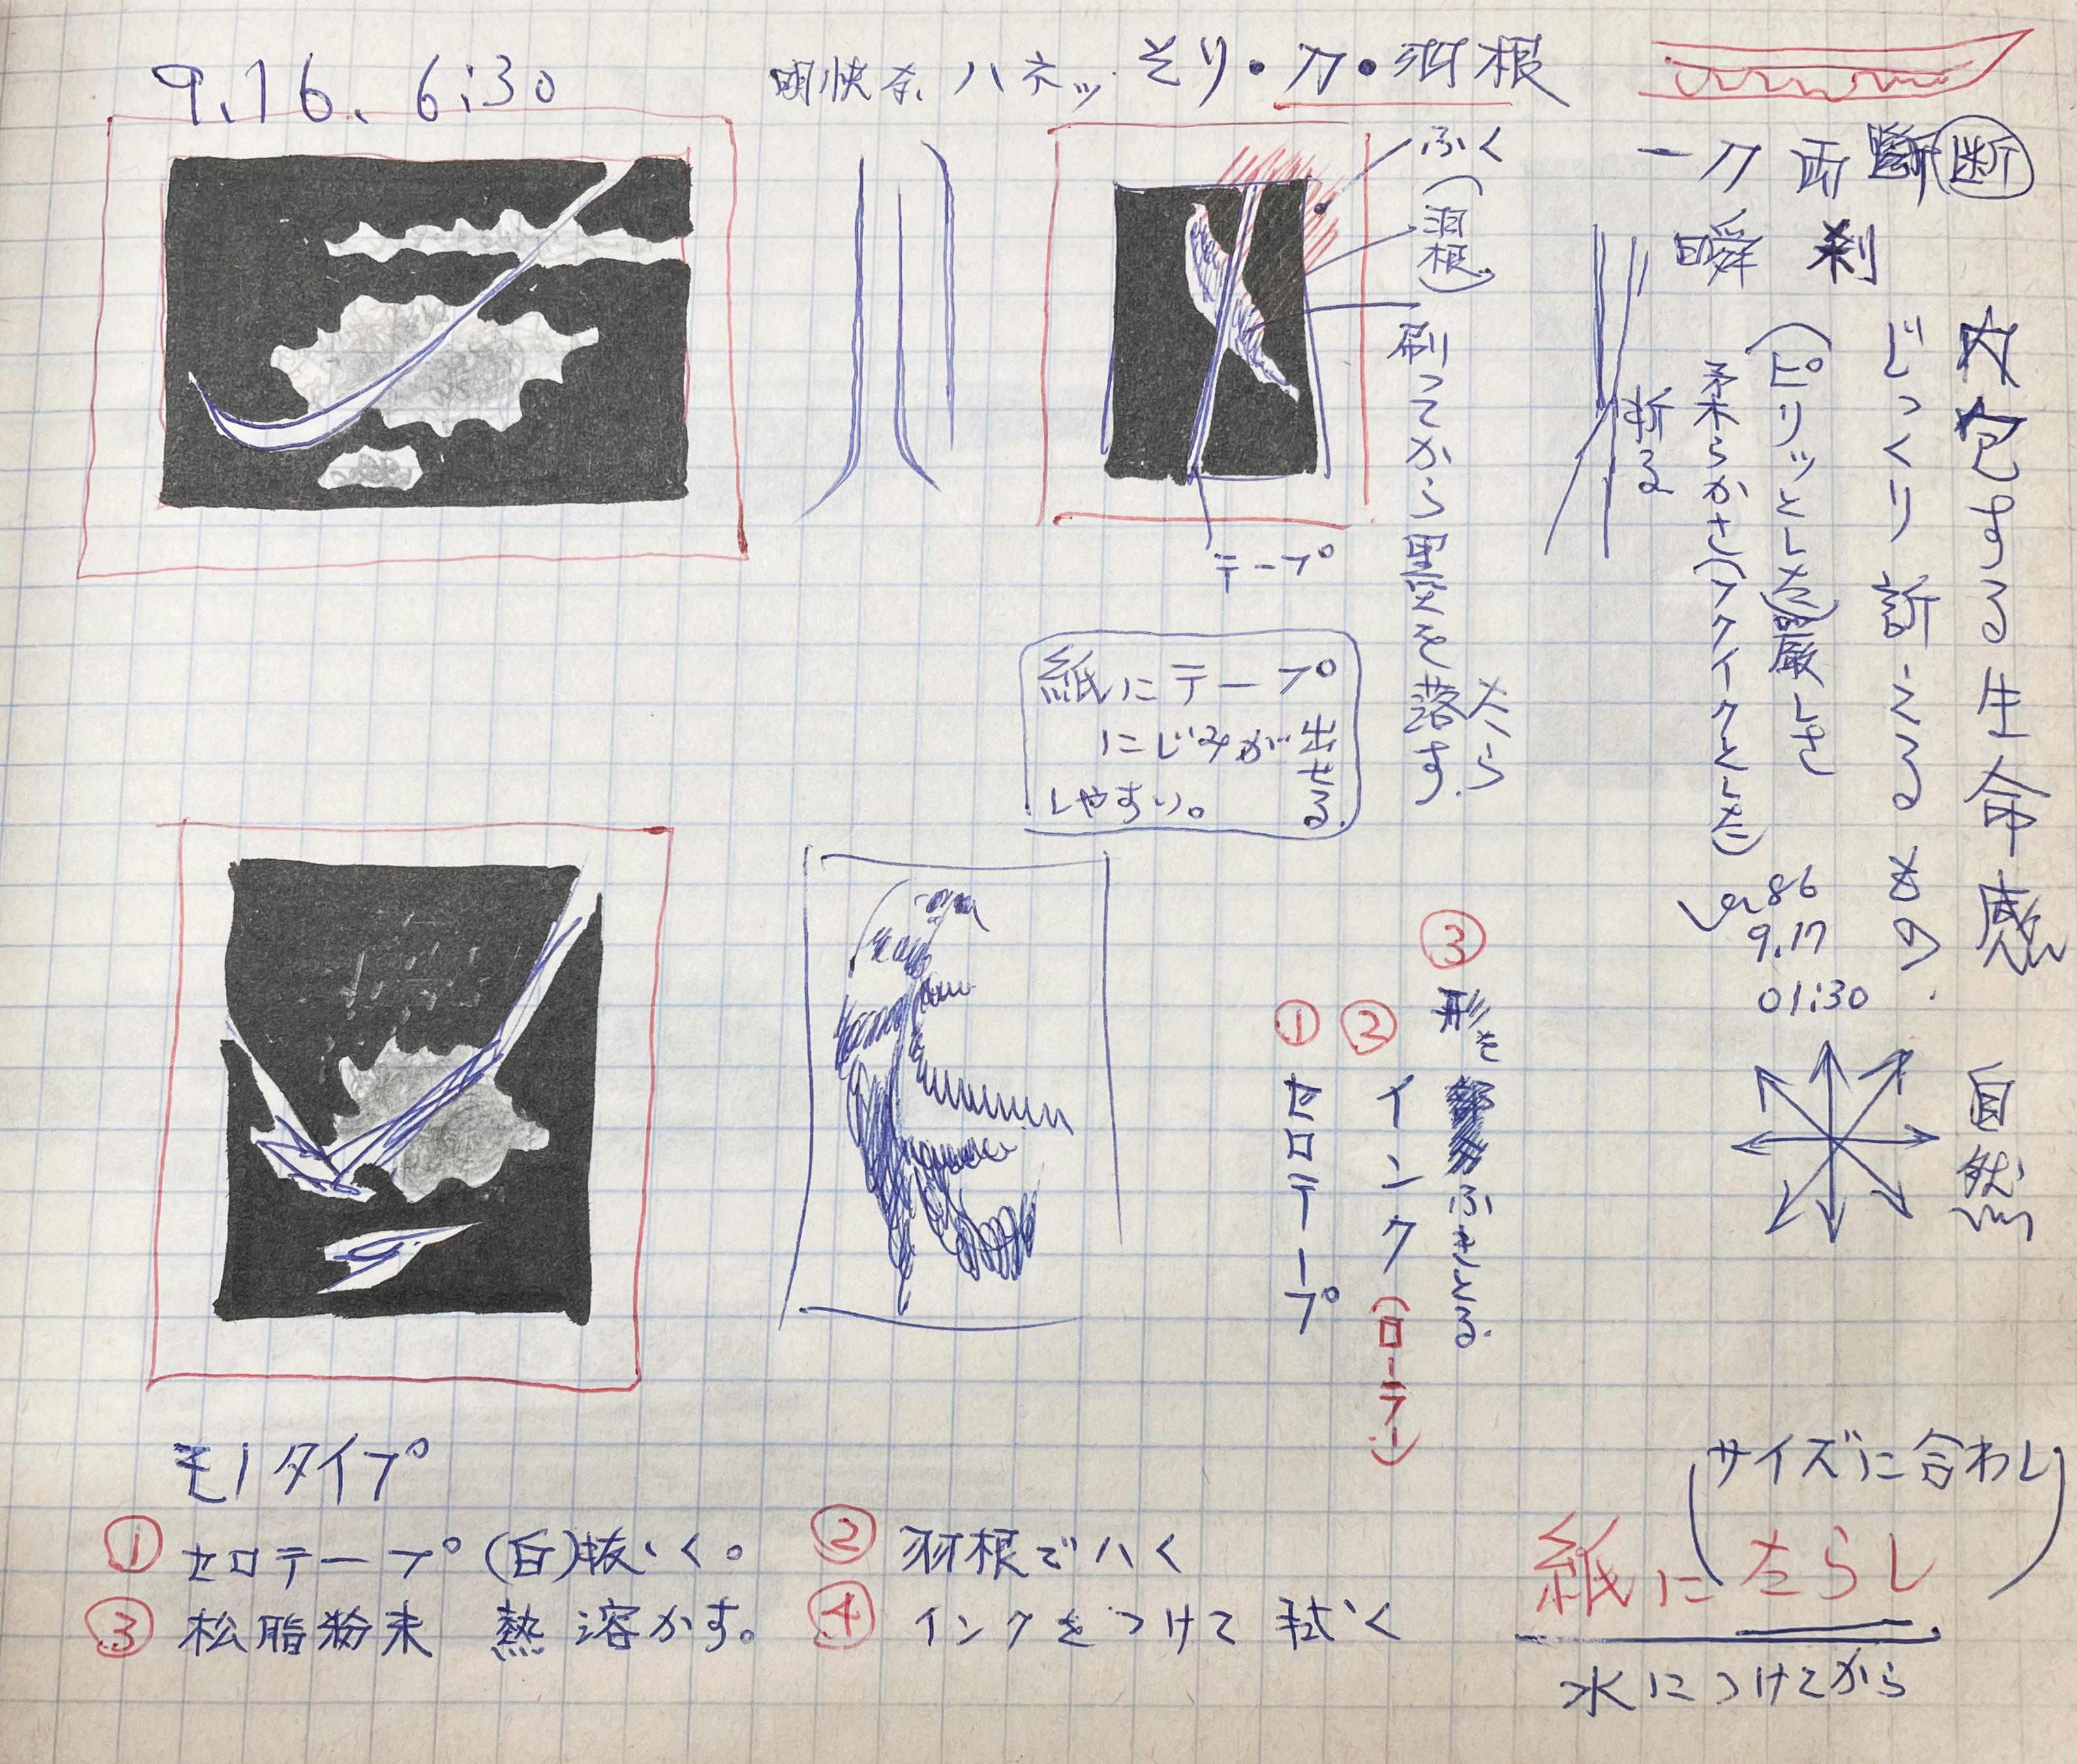 9.16. 6:30
明快な ハネッ そり・刀・羽根
一刀両断 断
瞬刹
内包する生命感
じっくり訴えるもの
(ピリッとした)厳しさ
柔らかさ(フワイークとした)
'86
9.17
01:30
折る
ふく
(羽根)
刷ってから周囲を落す。
テープ
紙にテープ
にじみが出せる
しやすい。
自然
③ 形を ふきとる。
② インク(ローラー)
① セロテープ
モノタイプ
① セロテープ(白)抜く。
② 羽根でハく
③ 松脂粉末 熱 溶かす。
④ インクをつけて 拭く
(サイズに合わし)
紙にたらし
水につけてから